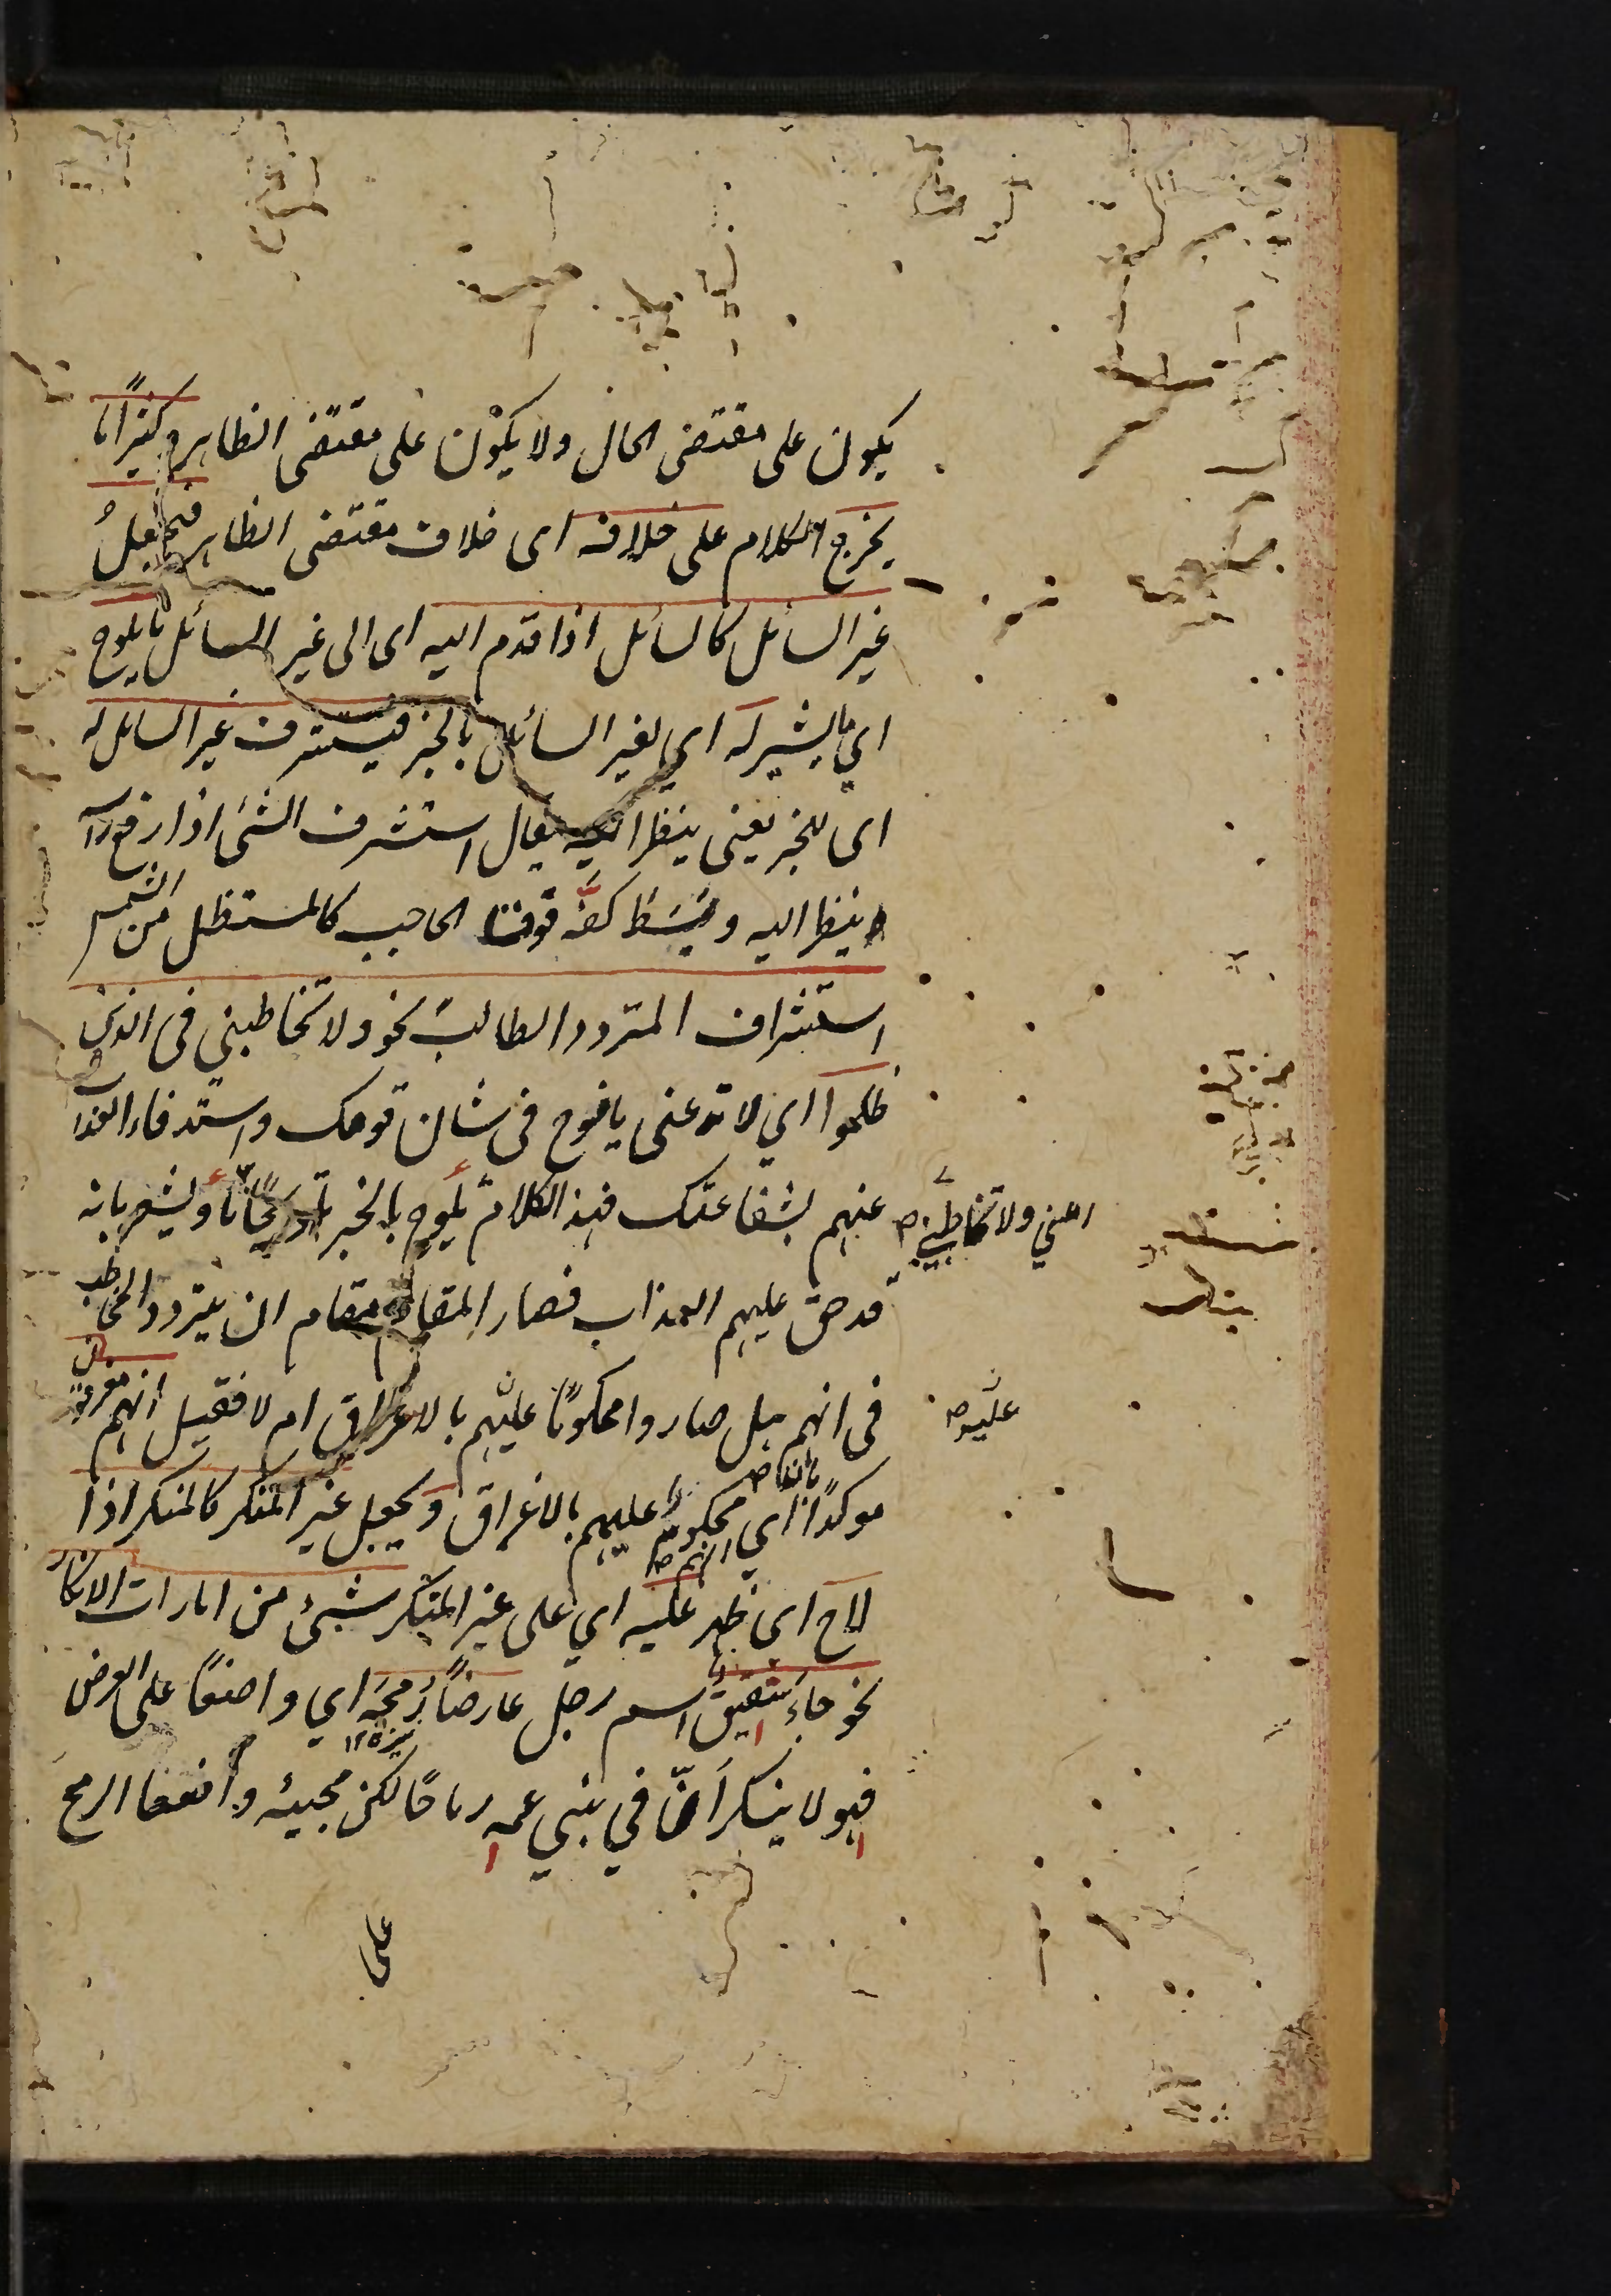 يكون على مقتضى الحال ولا يكون على مقتضى الظاهر وكثيرا ما
يخرج الكلام على خلافه اى خلاف مقتضى الظاهر فيجعلُ
غير السائل كالسائل اذا قدم اليه اى الى غير السائل ما يلوح
اي ما يشير له اي لغير السائل بالخبر فيستشرف غير السائل له
اى للخبر يعنى ينظر اليه يقال استشرف الشئ اذا رفع راسه
ينظر اليه ويبسط كفه فوق الحاجب كالمستظل من الشمس
استشراف المتردد الطالب نحو ولا تخاطبني فى الذين
ظلموا اي لا تدعنى يا نوح فى شان قومك واستدفاع العذاب
عنهم بشفاعتك فهذا الكلام يلوح بالخبر تلويحًا ما ويشعر بانه
اعني ولا تخاطبني
قد حق عليهم العذاب فصار المقام مقام ان يتردد المخاطب
فى انهم هل صاروا محكومًا عليهم بالاغراق ام لا فقيل انهم مغرقون
عليه
موكدًا اي محكوم عليهم بالاغراق ويجعل غير المنكر كالمنكر اذا
لاح اى ظهر عليه اي على غير المنكر شئ من امارات الانكار
نحو جاء شقيق اسم رجل عارضًا رمحه اي واضعًا على العرض
فهو لا ينكر أنّ في بني عمه رماحًا لكن مجيئه واضعا الرمح
على